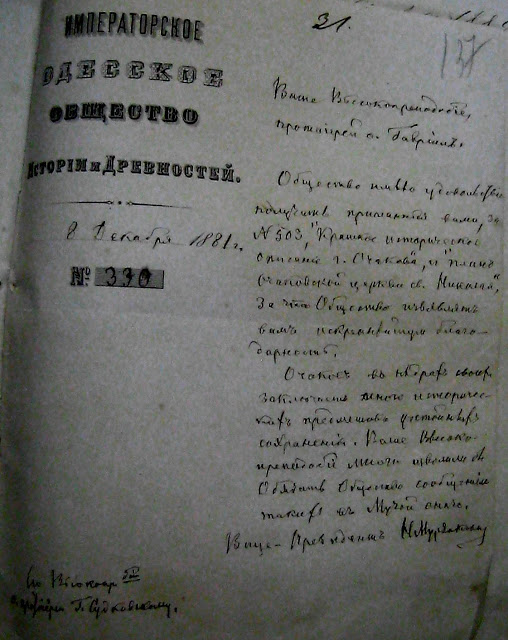 31.
137
ИМПЕРАТОРСКОЕ
ОДЕССКОЕ
ОБЩЕСТВО
ИСТОРІИ и ДРЕВНОСТЕЙ.
8 Декабря 1881 г.
№ 330
Ваше Высокопреподобіе,
протоіерей о. Гавріилъ.
Общество имѣло удовольствіе
получить присланныя вами, за
№ 503, "Краткое историческое
описаніе г. Очакова", и "планъ
очаковской церкви св. Николая",
За что Общество изъявляетъ
вамъ искреннѣйшую благо-
дарность.
Очаковъ въ нѣдрахъ своихъ
заключаетъ много историчес-
кихъ предметовъ достойныхъ
сохраненія. Ваше Высоко-
преподобіе много изволили бы
Обязать Общество сообщеніемъ
таковыхъ въ Музей
Вице-Президентъ Н Мурзакевичъ
Его Высокопр бію
о. протоіерею Г. Судковскому.